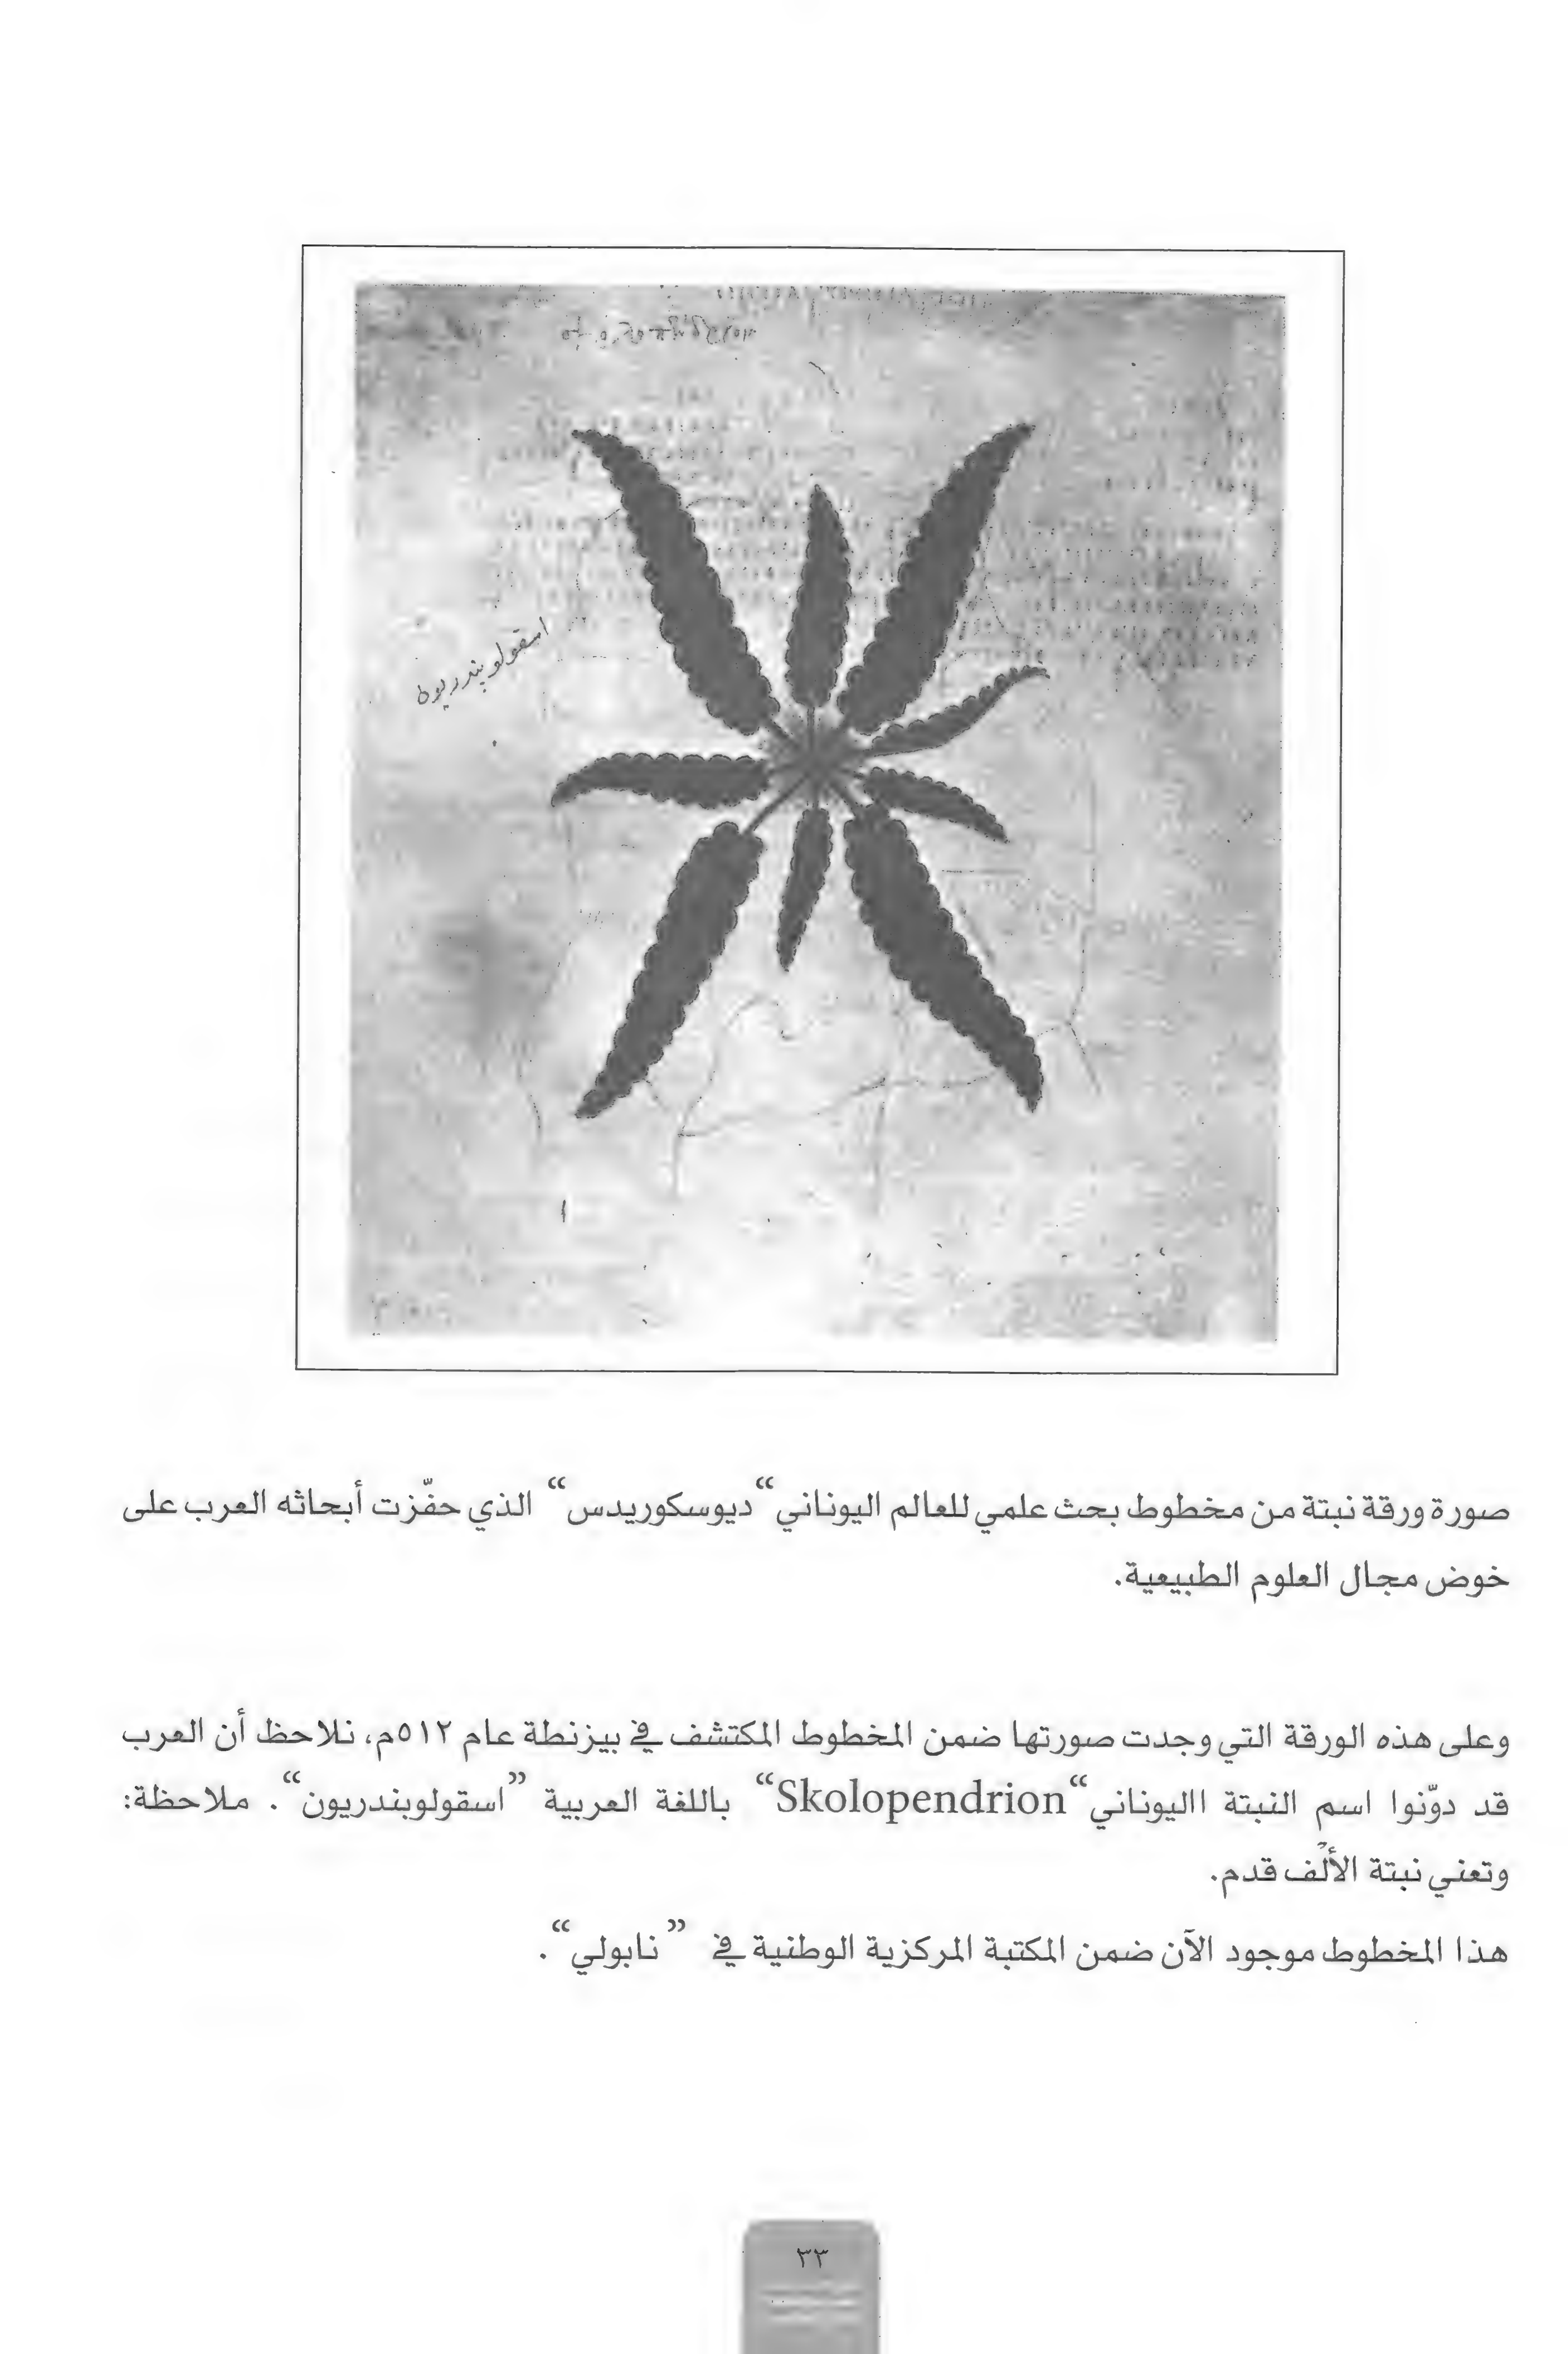 اسقولوبندريون
صورة ورقة نبتة من مخطوط بحث علمي للعالم اليوناني “ديوسكوريدس“ الذي حفّزت أبحاثه العرب على
خوض مجال العلوم الطبيعية.
وعلى هذه الورقة التي وجدت صورتها ضمن المخطوط المكتشف في بيزنطة عام ٥١٢م، نلاحظ أن العرب
قد دوّنوا اسم النبتة االيوناني “Skolopendrion“ باللغة العربية ”اسقولوبندريون“. ملاحظة:
وتعني نبتة الألْف قدم.
هذا المخطوط موجود الآن ضمن المكتبة المركزية الوطنية في ” نابولي“.
٣٣